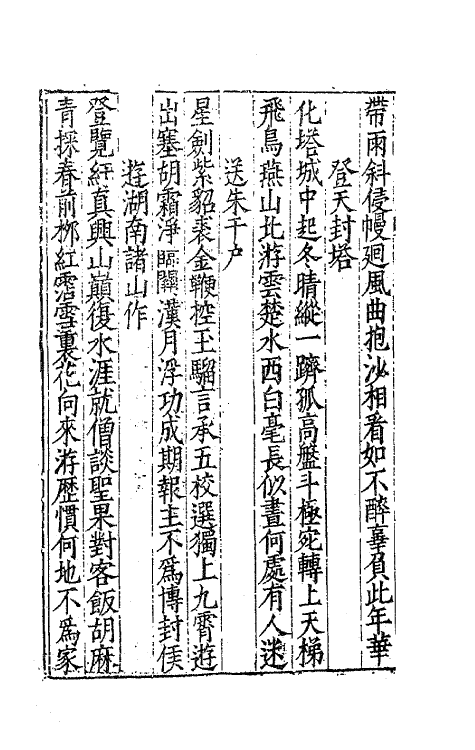 帶雨斜侵幔廻風曲抱沙相看如不醉辜負此年華
登天封塔
化塔城中起冬晴縱一躋孤高盤斗極宛轉上天梯
飛鳥燕山北游雲楚水西白毫長似晝何處有人迷
送朱千户
星劍紫貂裘金鞭控玉騮言承五校選獨上九霄遊
出塞胡霜淨臨關漢月浮功成期報主不爲博封侯
遊湖南諸山作
登覽紆真興山巔復水涯就僧談聖果對客飯胡麻
青探春前栁紅霑雪裏花向來游歷慣何地不爲家